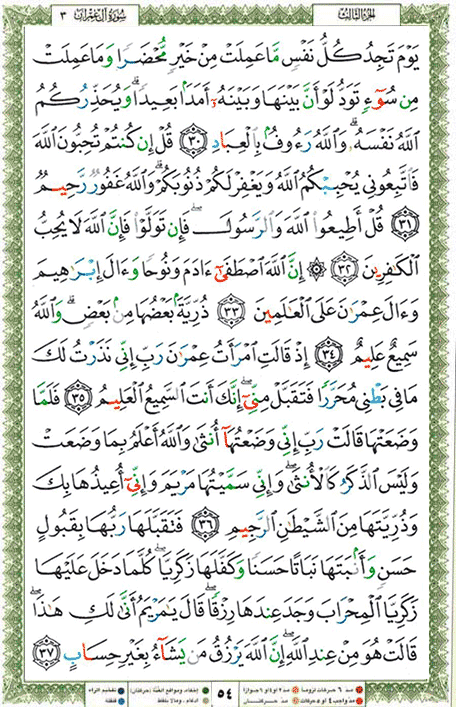 الجزء الثالث
سورة آل عمران ٣
يَوْمَ تَجِدُ كُلُّ نَفْسٍ مَّا عَمِلَتْ مِنْ خَيْرٍ مُّحْضَرًا وَمَا عَمِلَتْ
مِن سُوٓءٍ تَوَدُّ لَوْ أَنَّ بَيْنَهَا وَبَيْنَهُۥٓ أَمَدَۢا بَعِيدًاۗ وَيُحَذِّرُكُمُ
ٱللَّهُ نَفْسَهُۥۗ وَٱللَّهُ رَءُوفٌۢ بِٱلْعِبَادِ ٣٠ قُلْ إِن كُنتُمْ تُحِبُّونَ ٱللَّهَ
فَٱتَّبِعُونِى يُحْبِبْكُمُ ٱللَّهُ وَيَغْفِرْ لَكُمْ ذُنُوبَكُمْۗ وَٱللَّهُ غَفُورٌ رَّحِيمٌ
٣١ قُلْ أَطِيعُوا۟ ٱللَّهَ وَٱلرَّسُولَۖ فَإِن تَوَلَّوْا۟ فَإِنَّ ٱللَّهَ لَا يُحِبُّ
ٱلْكَٰفِرِينَ ٣٢ ۞ إِنَّ ٱللَّهَ ٱصْطَفَىٰٓ ءَادَمَ وَنُوحًا وَءَالَ إِبْرَٰهِيمَ
وَءَالَ عِمْرَٰنَ عَلَى ٱلْعَٰلَمِينَ ٣٣ ذُرِّيَّةَۢ بَعْضُهَا مِنۢ بَعْضٍۗ وَٱللَّهُ
سَمِيعٌ عَلِيمٌ ٣٤ إِذْ قَالَتِ ٱمْرَأَتُ عِمْرَٰنَ رَبِّ إِنِّى نَذَرْتُ لَكَ
مَا فِى بَطْنِى مُحَرَّرًا فَتَقَبَّلْ مِنِّىٓۖ إِنَّكَ أَنتَ ٱلسَّمِيعُ ٱلْعَلِيمُ ٣٥ فَلَمَّا
وَضَعَتْهَا قَالَتْ رَبِّ إِنِّى وَضَعْتُهَآ أُنثَىٰ وَٱللَّهُ أَعْلَمُ بِمَا وَضَعَتْ
وَلَيْسَ ٱلذَّكَرُ كَٱلْأُنثَىٰۖ وَإِنِّى سَمَّيْتُهَا مَرْيَمَ وَإِنِّىٓ أُعِيذُهَا بِكَ
وَذُرِّيَّتَهَا مِنَ ٱلشَّيْطَٰنِ ٱلرَّجِيمِ ٣٦ فَتَقَبَّلَهَا رَبُّهَا بِقَبُولٍ
حَسَنٍ وَأَنۢبَتَهَا نَبَاتًا حَسَنًا وَكَفَّلَهَا زَكَرِيَّاۖ كُلَّمَا دَخَلَ عَلَيْهَا
زَكَرِيَّا ٱلْمِحْرَابَ وَجَدَ عِندَهَا رِزْقًاۖ قَالَ يَٰمَرْيَمُ أَنَّىٰ لَكِ هَٰذَاۖ
قَالَتْ هُوَ مِنْ عِندِ ٱللَّهِۖ إِنَّ ٱللَّهَ يَرْزُقُ مَن يَشَآءُ بِغَيْرِ حِسَابٍ ٣٧
مدّ ٦ حركات لزوماً مدّ ٢ أو ٤ أو ٦ جوازاً
مدّ واجب ٤ أو ٥ حركات مدّ حركتان
٥٤
إخفاء، ومواقع الغُنَّة (حركتان) تفخيم الراء
إدغام، وما لا يُلفظ قلقلة